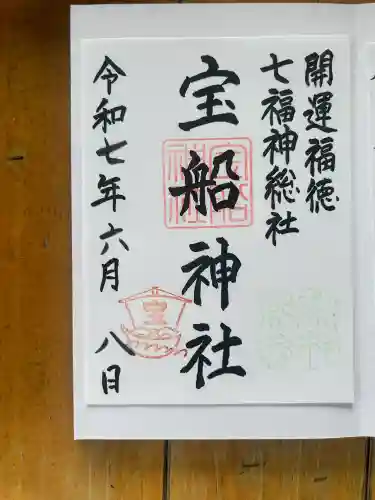 開運福徳
七福神総社
宝船神社
令和七年六月八日
宝船神社
宝